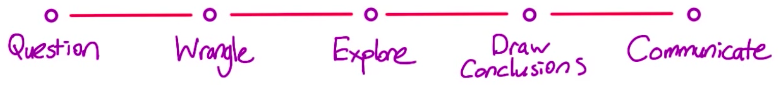 Question
Wrangle
Explore
Draw
Conclusions
Communicate